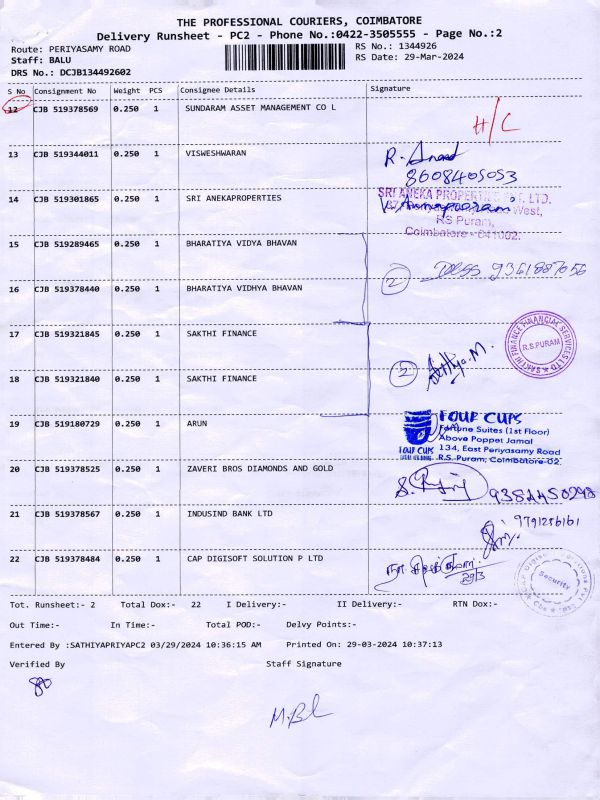 THE PROFESSIONAL COURIERS, COIMBATORE
Delivery Runsheet - PC2 - Phone No.:0422-3505555 - Page No.:2
Route: PERIYASAMY ROAD
RS No.: 1344926
Staff: BALU
RS Date: 29-Mar-2024
DRS No.: DCJB134492602
S No Consignment No Weight PCS Consignee Details Signature
12 CJB 519378569 0.250 1 SUNDARAM ASSET MANAGEMENT CO L
H/C
13 CJB 519344011 0.250 1 VISWESHWARAN
R. Anand
8608405053
14 CJB 519301865 0.250 1 SRI ANEKAPROPERTIES
SRI ANEKA PROPERTIES LTD.
West,
RS Puram,
Coimbatore - 641002.
15 CJB 519289465 0.250 1 BHARATIYA VIDYA BHAVAN
2
16 CJB 519378440 0.250 1 BHARATIYA VIDHYA BHAVAN
17 CJB 519321845 0.250 1 SAKTHI FINANCE
SAKTHI FINANCE FINANCIAL SERVICES LTD
R.S.PURAM
2
18 CJB 519321840 0.250 1 SAKTHI FINANCE
19 CJB 519180729 0.250 1 ARUN
FOUR CUPS
Fortune Suites (1st Floor)
Above Poppet Jamal
134, East Periyasamy Road
R.S. Puram, Coimbatore-02.
FOUR CUPS
20 CJB 519378525 0.250 1 ZAVERI BROS DIAMONDS AND GOLD
21 CJB 519378567 0.250 1 INDUSIND BANK LTD
9791256161
22 CJB 519378484 0.250 1 CAP DIGISOFT SOLUTION P LTD
29/3
Security
Tot. Runsheet:- 2 Total Dox:- 22 I Delivery:- II Delivery:- RTN Dox:-
Out Time:- In Time:- Total POD:- Delvy Points:-
Entered By :SATHIYAPRIYAPC2 03/29/2024 10:36:15 AM Printed On: 29-03-2024 10:37:13
Verified By Staff Signature